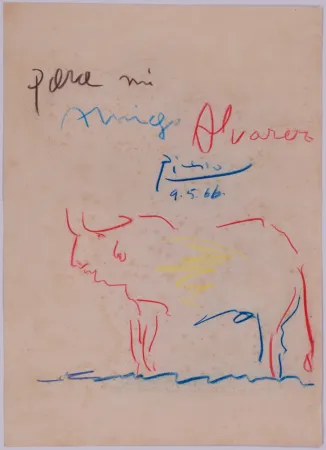 para mi
amigo Alvarez
Picasso
9.5.66.